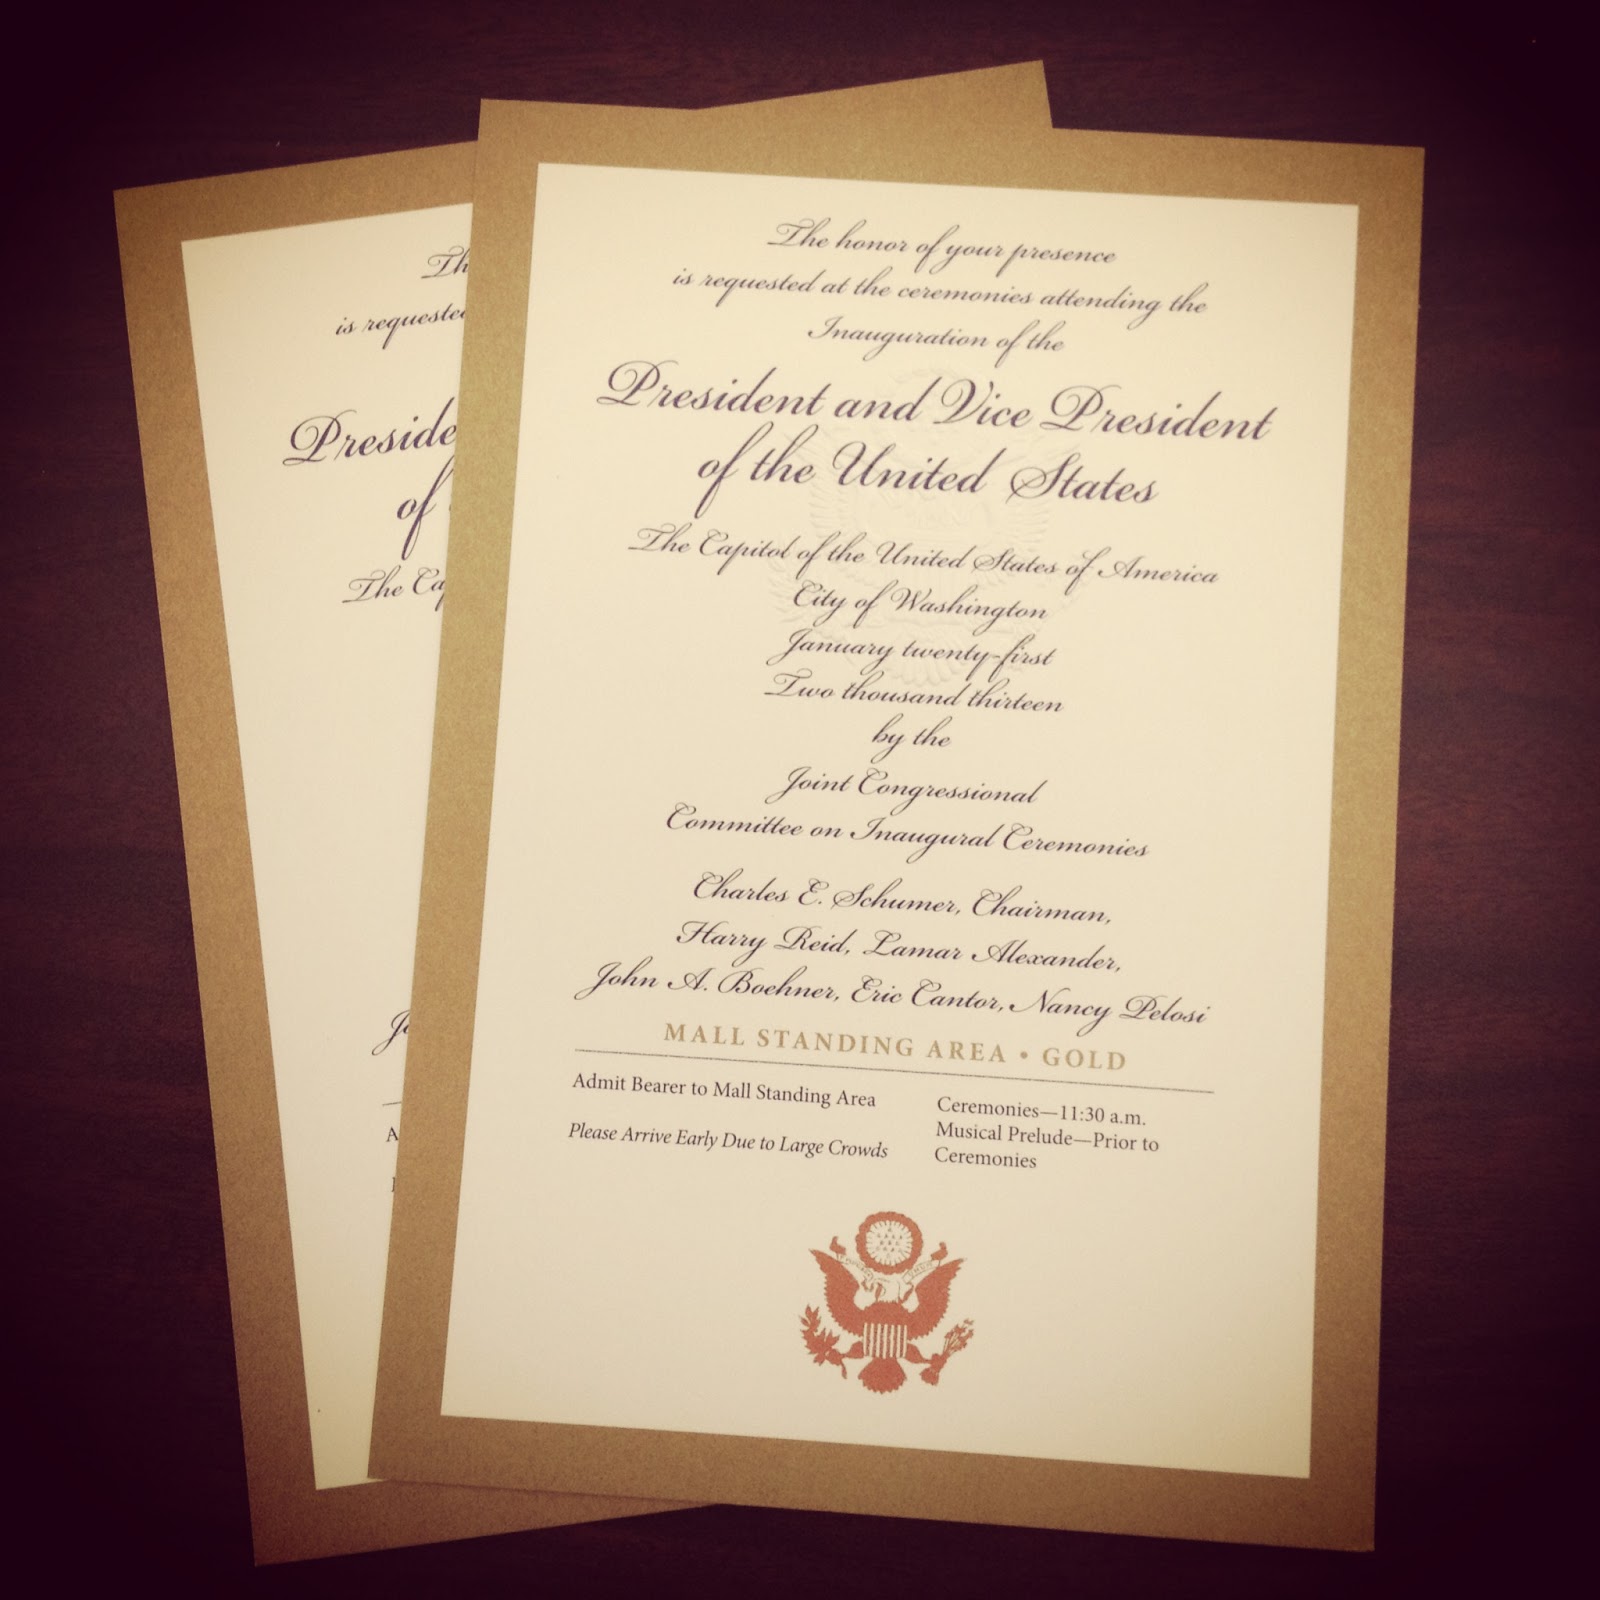 The honor of your presence
is requested at the ceremonies attending the
Inauguration of the
President and Vice President
of the United States
The Capitol of the United States of America
City of Washington
January twenty-first
Two thousand thirteen
by the
Joint Congressional
Committee on Inaugural Ceremonies
Charles E. Schumer, Chairman,
Harry Reid, Lamar Alexander,
John A. Boehner, Eric Cantor, Nancy Pelosi
MALL STANDING AREA • GOLD
Admit Bearer to Mall Standing Area
Please Arrive Early Due to Large Crowds
Ceremonies—11:30 a.m.
Musical Prelude—Prior to
Ceremonies
Th
is requested
Preside
of
The Cap
Jo
A